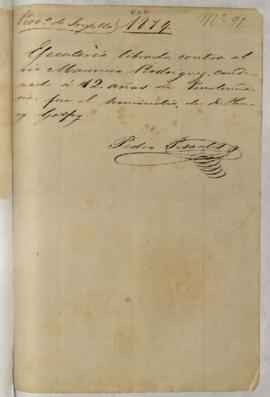 406
Prov.ª de Trujillo 1874. Nº 91.
Ejecutoria librada contra el
reo Mauricio Rodriguez, conde-
nado á 12 años de Penitencia-
ria, por el homicidio de D. Hen-
ry
Pedro